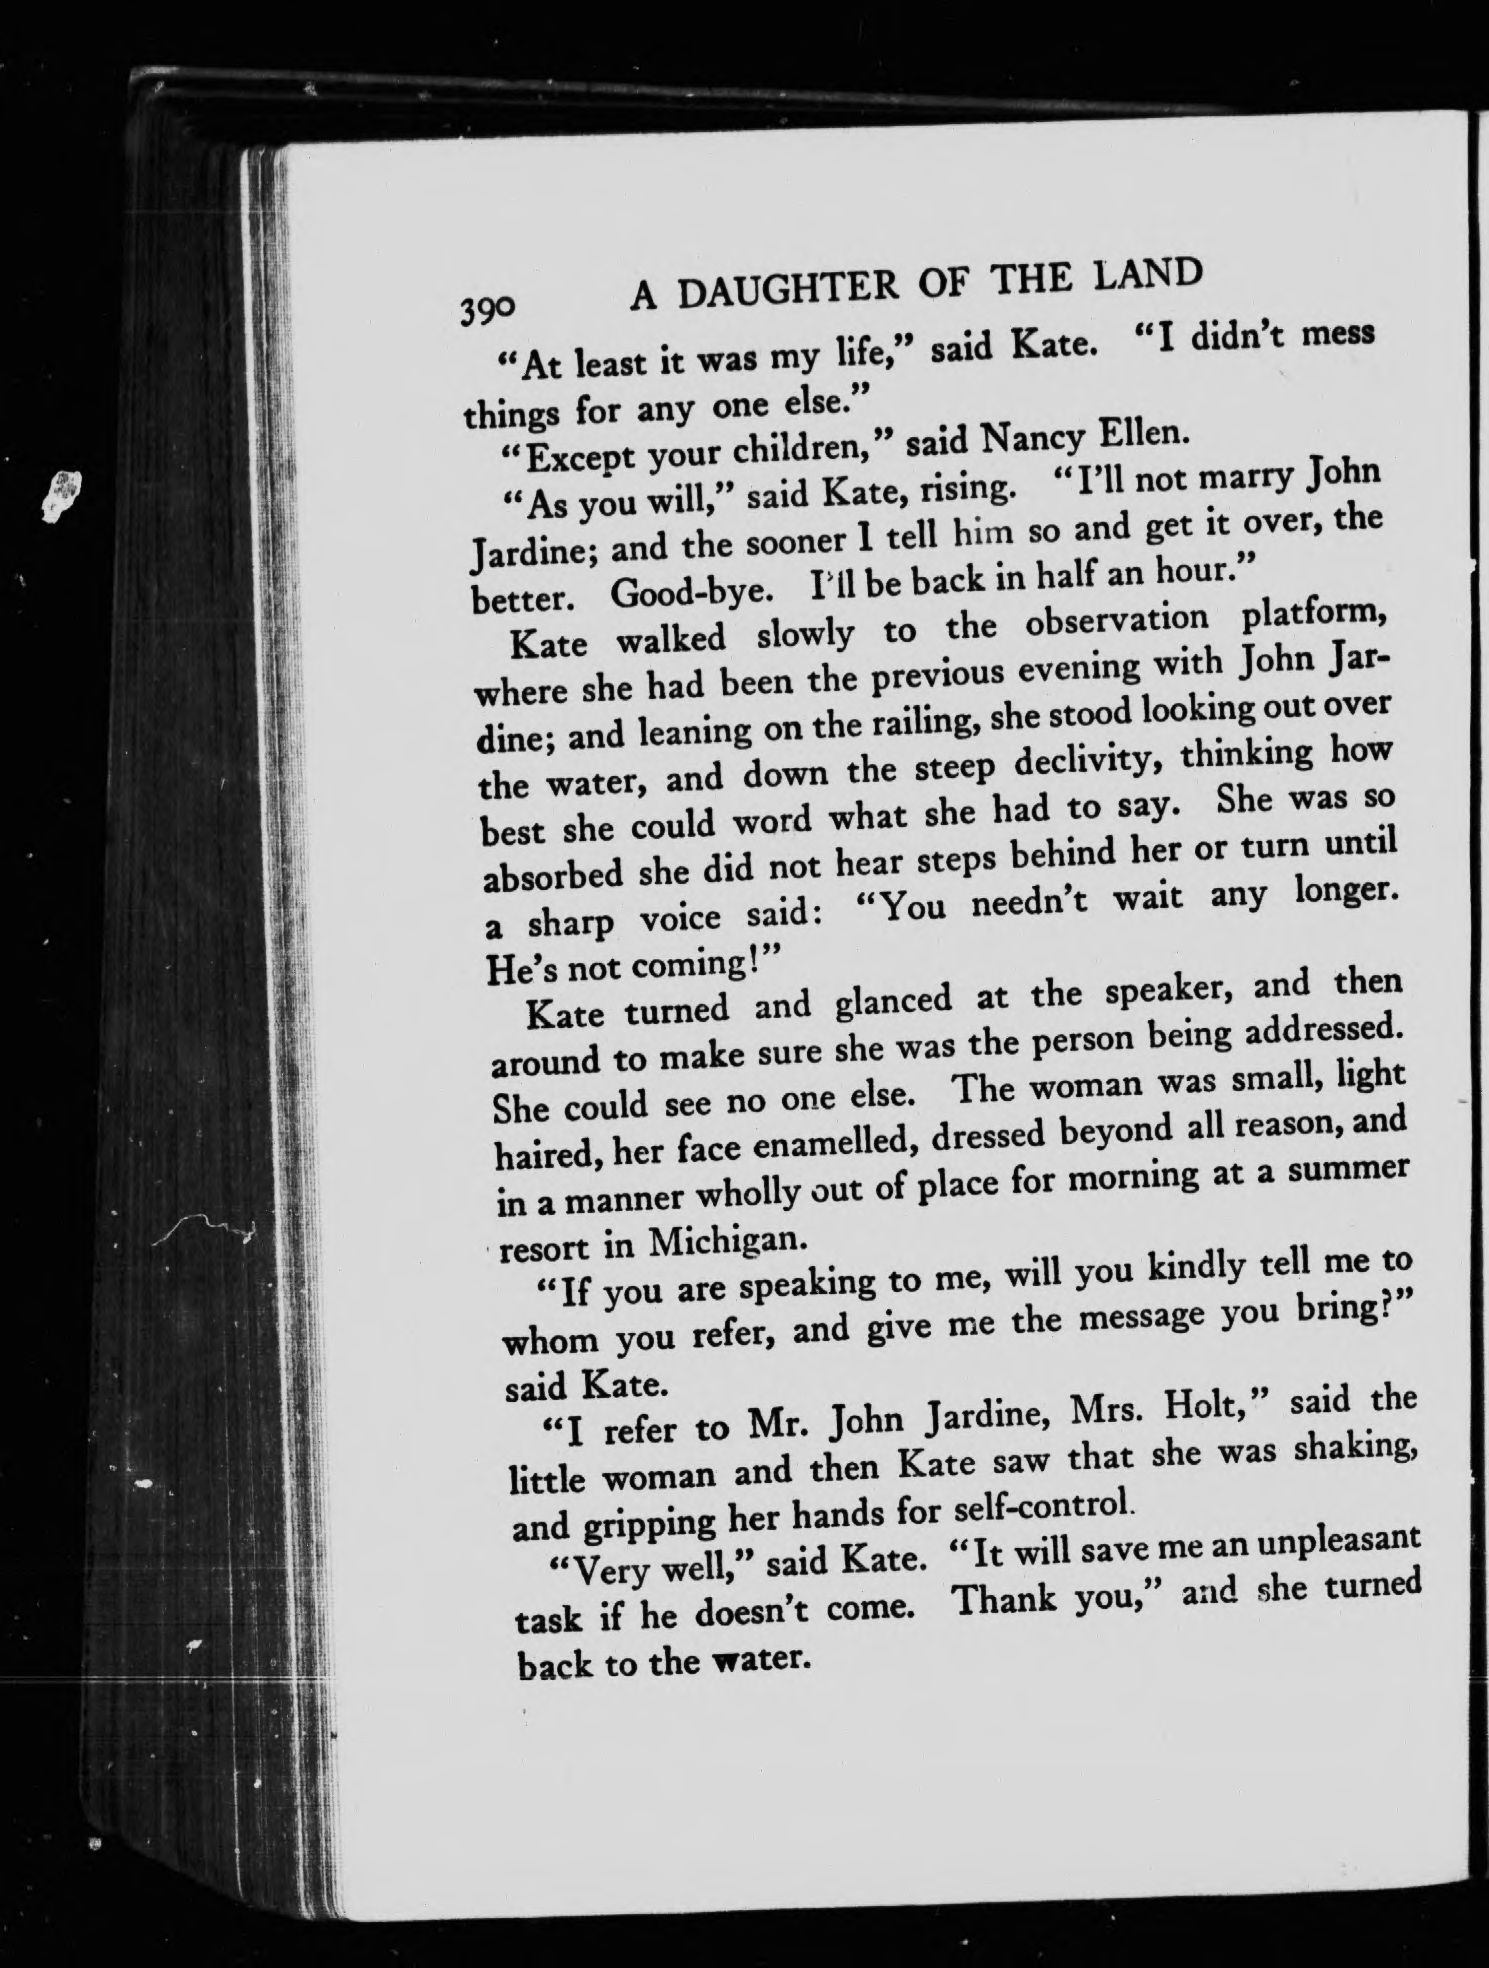 390 A DAUGHTER OF THE LAND
“At least it was my life,” said Kate. “I didn’t mess
things for any one else.”
“Except your children,” said Nancy Ellen.
“As you will,” said Kate, rising. “I’ll not marry John
Jardine; and the sooner I tell him so and get it over, the
better. Good-bye. I’ll be back in half an hour.”
Kate walked slowly to the observation platform,
where she had been the previous evening with John Jar-
dine; and leaning on the railing, she stood looking out over
the water, and down the steep declivity, thinking how
best she could word what she had to say. She was so
absorbed she did not hear steps behind her or turn until
a sharp voice said: “You needn’t wait any longer.
He’s not coming!”
Kate turned and glanced at the speaker, and then
around to make sure she was the person being addressed.
She could see no one else. The woman was small, light
haired, her face enamelled, dressed beyond all reason, and
in a manner wholly out of place for morning at a summer
resort in Michigan.
“If you are speaking to me, will you kindly tell me to
whom you refer, and give me the message you bring?”
said Kate.
“I refer to Mr. John Jardine, Mrs. Holt,” said the
little woman and then Kate saw that she was shaking,
and gripping her hands for self-control.
“Very well,” said Kate. “It will save me an unpleasant
task if he doesn’t come. Thank you,” and she turned
back to the water.